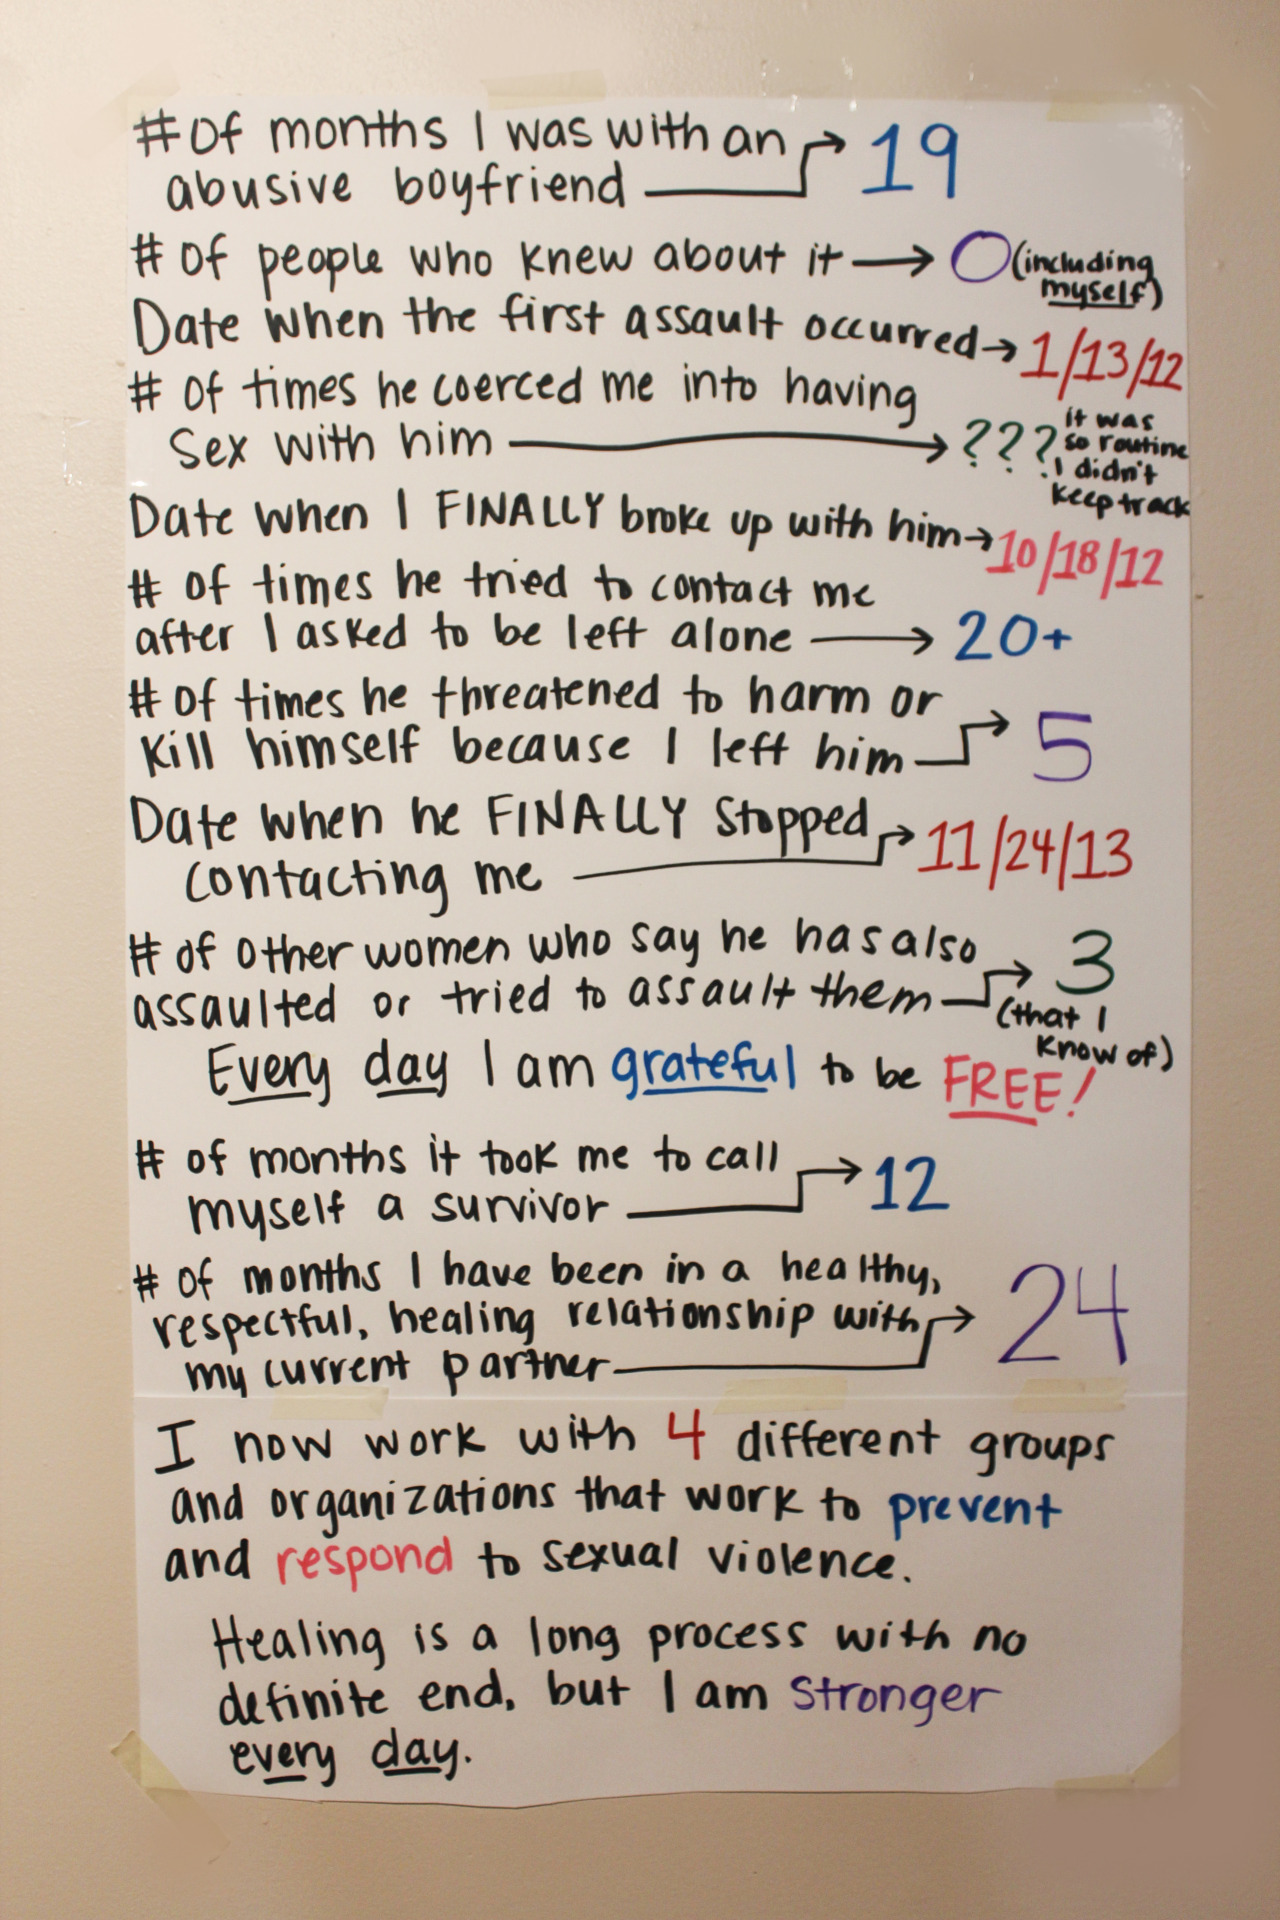 # of months I was with an
abusive boyfriend → 19
# of people who knew about it → 0 (including
myself)
Date when the first assault occurred → 1/13/12
# of times he coerced me into having
sex with him → ??? it was
so routine
I didn't
keep track
Date when I FINALLY broke up with him → 10/18/12
# of times he tried to contact me
after I asked to be left alone → 20+
# of times he threatened to harm or
kill himself because I left him → 5
Date when he FINALLY stopped
contacting me → 11/24/13
# of other women who say he has also
assaulted or tried to assault them → 3
(that I
know of)
Every day I am grateful to be FREE!
# of months it took me to call
myself a survivor → 12
# of months I have been in a healthy,
respectful, healing relationship with
my current partner → 24
I now work with 4 different groups
and organizations that work to prevent
and respond to sexual violence.
Healing is a long process with no
definite end, but I am stronger
every day.